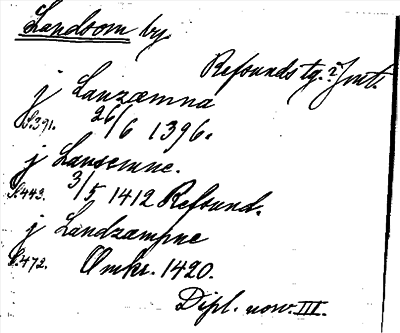 Landsom by
Refsunds tg. i Jmt.
j Lanzæmna
S.391. 26/6 1396.
j Lansemne.
S.443. 3/5 1412 Refsund.
j Landzæmpne
S.472. Omkr. 1420.
Dipl. norv. III.